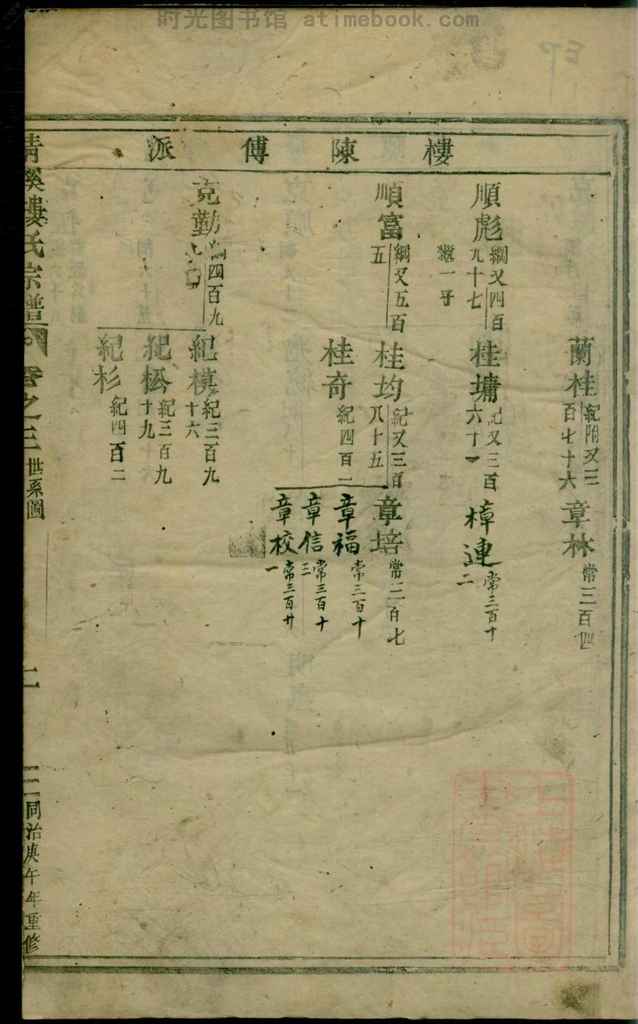 时光图书馆 atimebook.com
樓陳傅派
蘭桂 紀附又三百七十六
章林 常三百四
順彪 綱又四百九十七
繼一子
桂墉 紀又三百六十一
樟連 常三百十二
順富 綱又五百五
桂均 紀又三百八十五
章培 常三百七
桂奇 紀四百一
章福 常三百十
章信 常三百十三
章校 常三百廿一
克勤 四百九
紀模 紀三百九十六
紀極 紀三百九十九
紀杉 紀四百二
清溪樓氏宗譜
卷之三 世系圖
同治庚午年重修